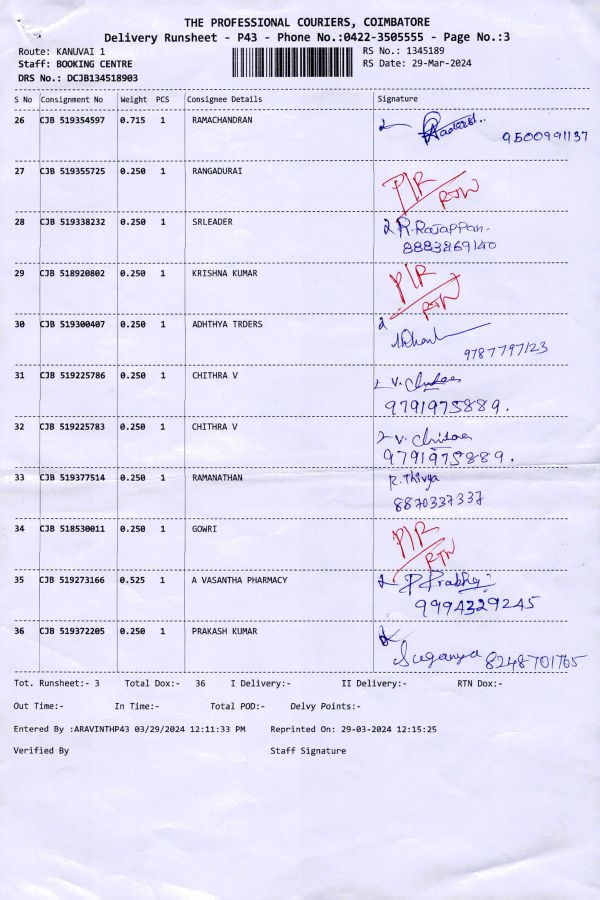 THE PROFESSIONAL COURIERS, COIMBATORE
Delivery Runsheet - P43 - Phone No.:0422-3505555 - Page No.:3
Route: KANUVAI 1 RS No.: 1345189
Staff: BOOKING CENTRE RS Date: 29-Mar-2024
DRS No.: DCJB134518903
S No Consignment No Weight PCS Consignee Details Signature
26 CJB 519354597 0.715 1 RAMACHANDRAN
9500991137
27 CJB 519355725 0.250 1 RANGADURAI
P/R
RTN
28 CJB 519338232 0.250 1 SRLEADER R.Rajappan.
8883869140
29 CJB 518920802 0.250 1 KRISHNA KUMAR P/R
RTN
30 CJB 519300407 0.250 1 ADHTHYA TRDERS
9787797123
31 CJB 519225786 0.250 1 CHITHRA V V. Chitra
9791975889.
32 CJB 519225783 0.250 1 CHITHRA V V. Chitra
9791975889.
33 CJB 519377514 0.250 1 RAMANATHAN R. Thivya
8870337337
34 CJB 518530011 0.250 1 GOWRI P/R
RTN
35 CJB 519273166 0.525 1 A VASANTHA PHARMACY P Prabhu
9994329245
36 CJB 519372205 0.250 1 PRAKASH KUMAR
Suganya 8248701765
Tot. Runsheet:- 3 Total Dox:- 36 I Delivery:- II Delivery:- RTN Dox:-
Out Time:- In Time:- Total POD:- Delvy Points:-
Entered By :ARAVINTHP43 03/29/2024 12:11:33 PM Reprinted On: 29-03-2024 12:15:25
Verified By Staff Signature